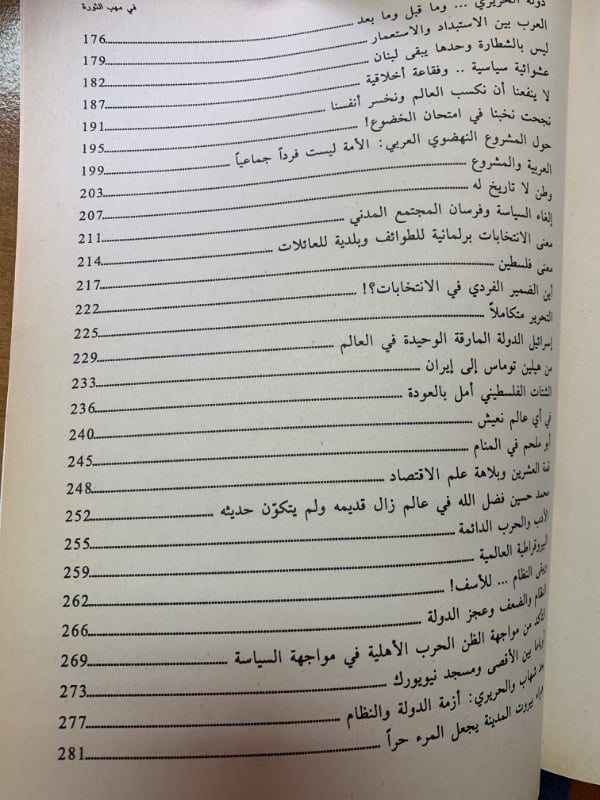 في مهب الثورة
دولة الحريري ... وما قبل وما بعد 176
العرب بين الاستبداد والاستعمار 179
ليس بالشطارة وحدها يبقى لبنان 182
عشوائية سياسية .. وفقاعة أخلاقية 187
لا ينفعنا أن نكسب العالم ونخسر أنفسنا 191
نجحت نخبنا في امتحان الخضوع! 195
حول المشروع النهضوي العربي: الأمة ليست فرداً جماعياً 199
العربية والمشروع 203
وطن لا تاريخ له 207
إلغاء السياسة وفرسان المجتمع المدني 211
معنى الانتخابات برلمانية للطوائف وبلدية للعائلات 214
معنى فلسطين 217
أين الضمير الفردي في الانتخابات؟! 222
التحرير متكاملاً 225
إسرائيل الدولة المارقة الوحيدة في العالم 229
من هيلين توماس إلى إيران 233
الشتات الفلسطيني أمل بالعودة 236
في أي عالم نعيش 240
أبو ملحم في المنام 245
قمة العشرين وبلاهة علم الاقتصاد 248
محمد حسين فضل الله في عالم زال قديمه ولم يتكوّن حديثه 252
الأدب والحرب الدائمة 255
البيروقراطية العالمية 259
ويبقى النظام ... للأسف! 262
النظام والضعف وعجز الدولة 266
من مواجهة الظن الحرب الأهلية في مواجهة السياسة 269
أوباما بين الأقصى ومسجد نيويورك 273
بعد شهاب والحريري: أزمة الدولة والنظام 277
هواء بيروت المدينة يجعل المرء حراً 281